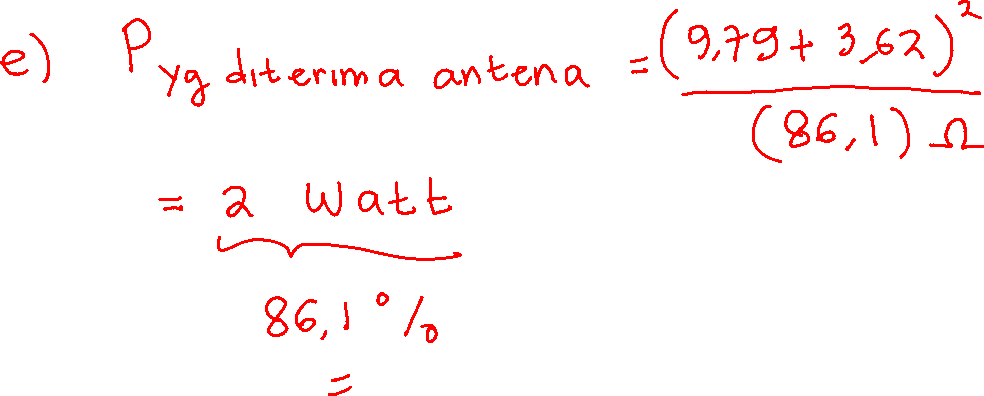 e) P yg diterima antena = (9,79 + 3,62)² / (86,1) Ω
= 2 Watt
86,1 %
=